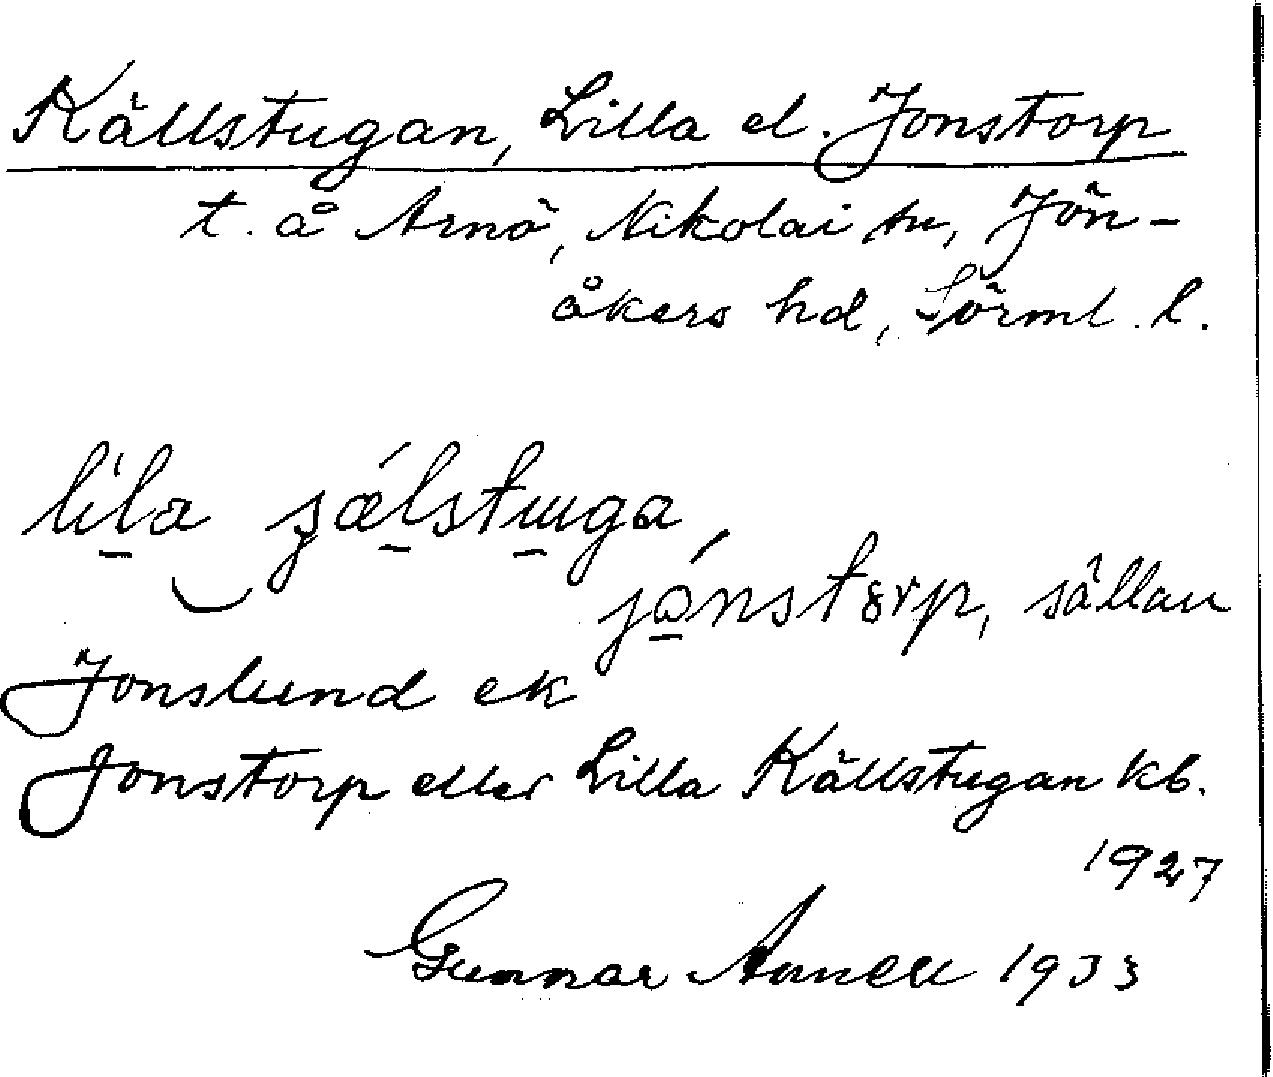 Källstugan, Lilla el. Jonstorp
t. å Arnö, Nikolai sn, Jön-
åkers hd, Sörml. l.
jónstorp, sällan
Jonslund ek
Jonstorp eller Lilla Källstugan kb.
1927
Gunnar Annell 1933